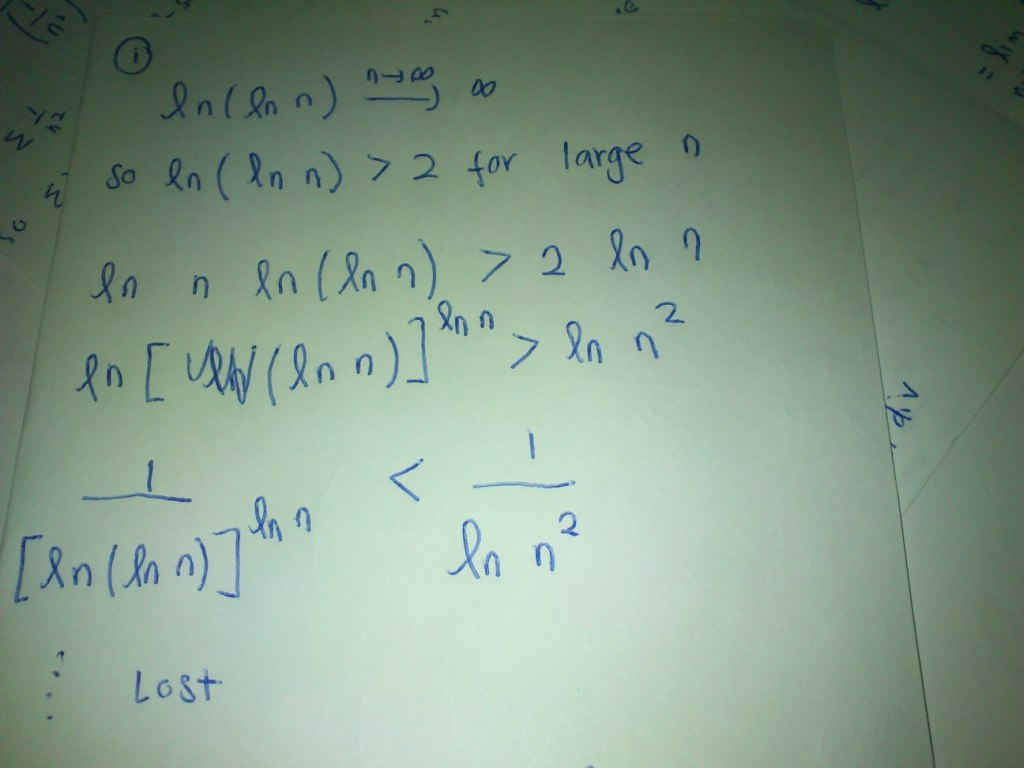 ①
ln(ln n) n→∞ → ∞
so ln(ln n) > 2 for large n
ln n ln(ln n) > 2 ln n
ln[(ln n)]^{ln n} > ln n²
1/[ln(ln n)]^{ln n} < 1/ln n²
⋮ Lost